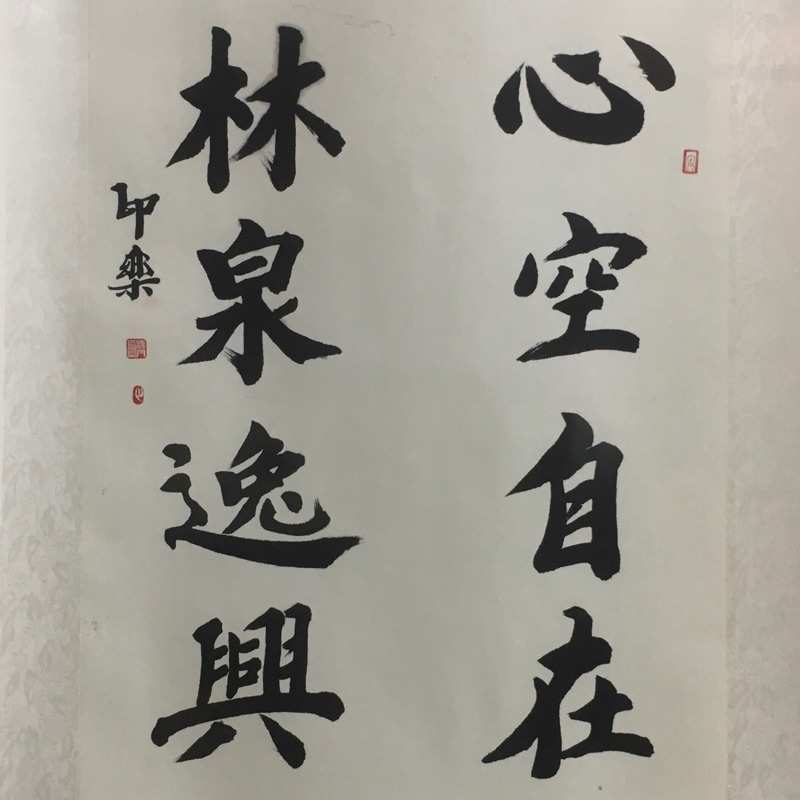 心空自在
林泉逸興
印樂